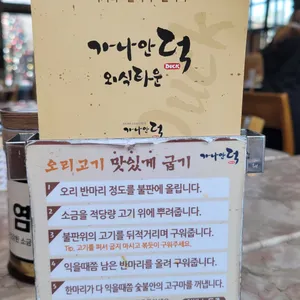 가나안덕
DUCK
외식타운
가나안덕
Duck
오리고기 맛있게 굽기
가나안덕
1 오리 반마리 정도를 불판에 올립니다.
2 소금을 적당량 고기 위에 뿌려줍니다.
3 불판위의 고기를 뒤적거리며 구워줍니다.
Tip. 고기를 펴서 굽지 마시고 볶듯이 구워주세요.
4 익을때쯤 남은 반마리를 올려 구워줍니다.
5 한마리가 다 익을때쯤 숯불안의 고구마를 꺼냅니다.
염
소금